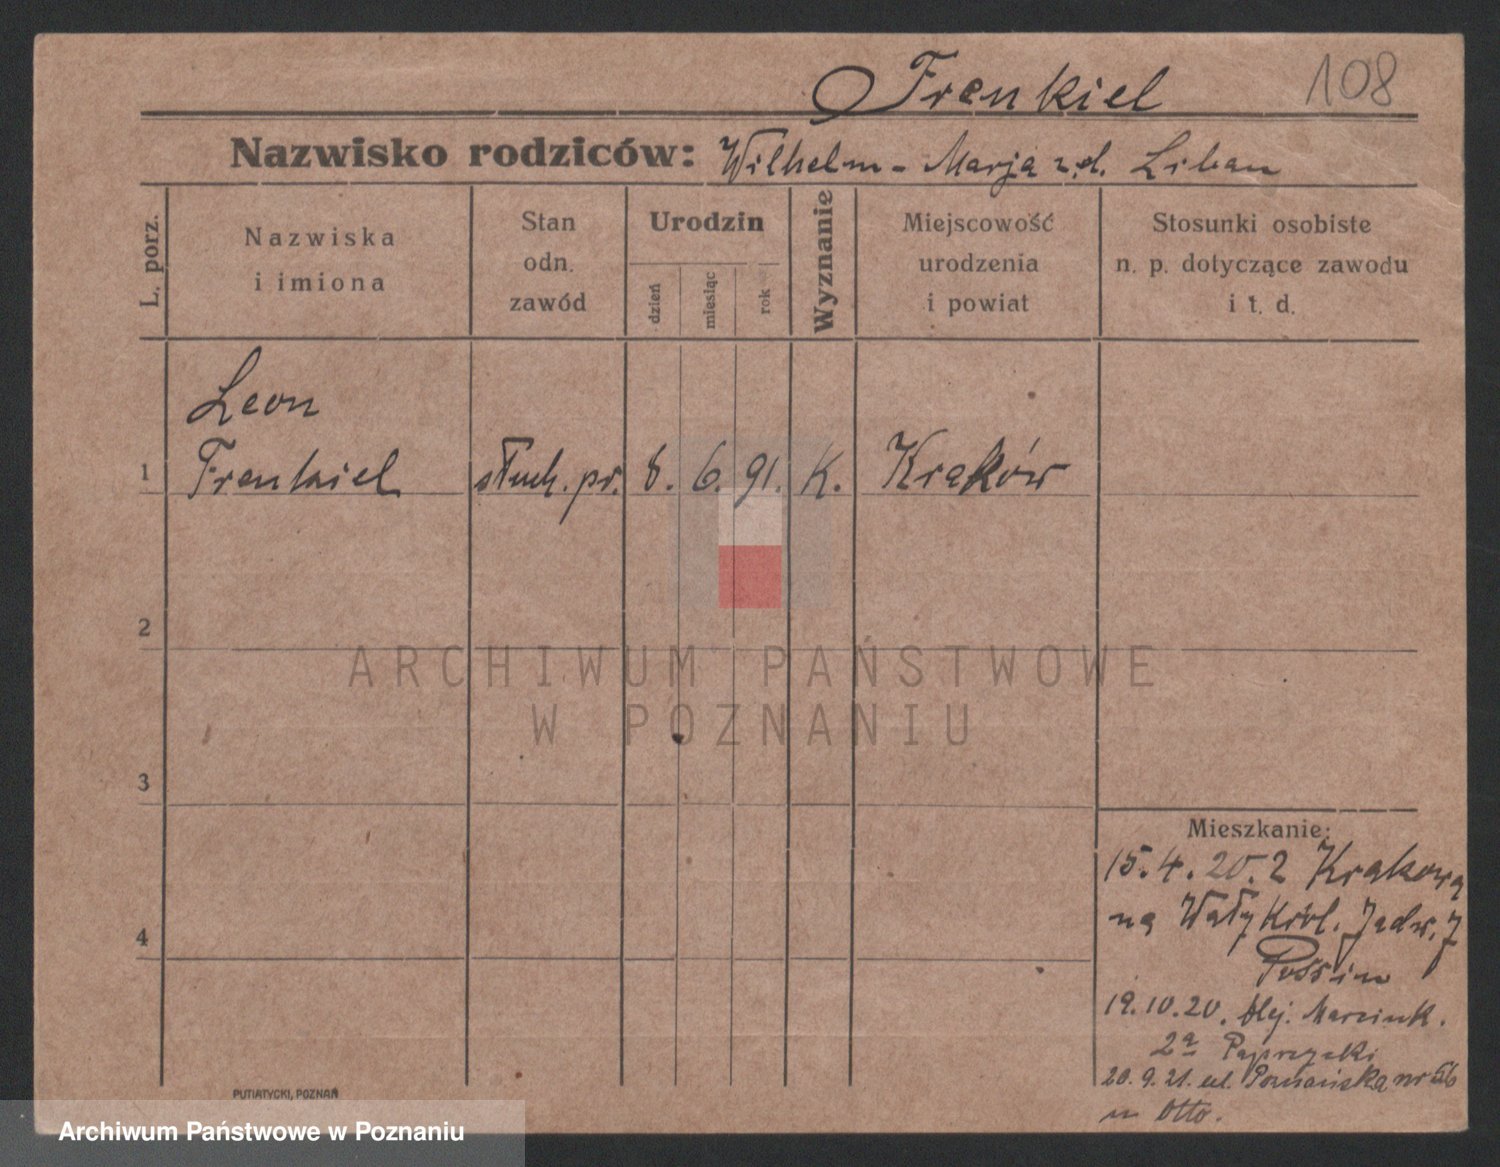 Frenkiel
108
Nazwisko rodziców: Wilhelm - Marja z.d. Liban
L. porz.
Nazwiska
i imiona
Stan
odn.
zawód
Urodzin
dzień
miesiąc
rok
Wyznanie
Miejscowość
urodzenia
i powiat
Stosunki osobiste
n. p. dotyczące zawodu
i t. d.
Leon
1 Frenkiel słuch. pr. 8. 6. 91. K. Kraków
2
ARCHIWUM PAŃSTWOWE
W POZNANIU
3
Mieszkanie:
15.4.20. z Krakowa
na Wały Król. Jadw. 7
4
19.10.20. Alej. Marcink.
2a
20.9.21. ul. Poznańska nr 56
u Otto.
PUTIATYCKI, POZNAŃ
Archiwum Państwowe w Poznaniu